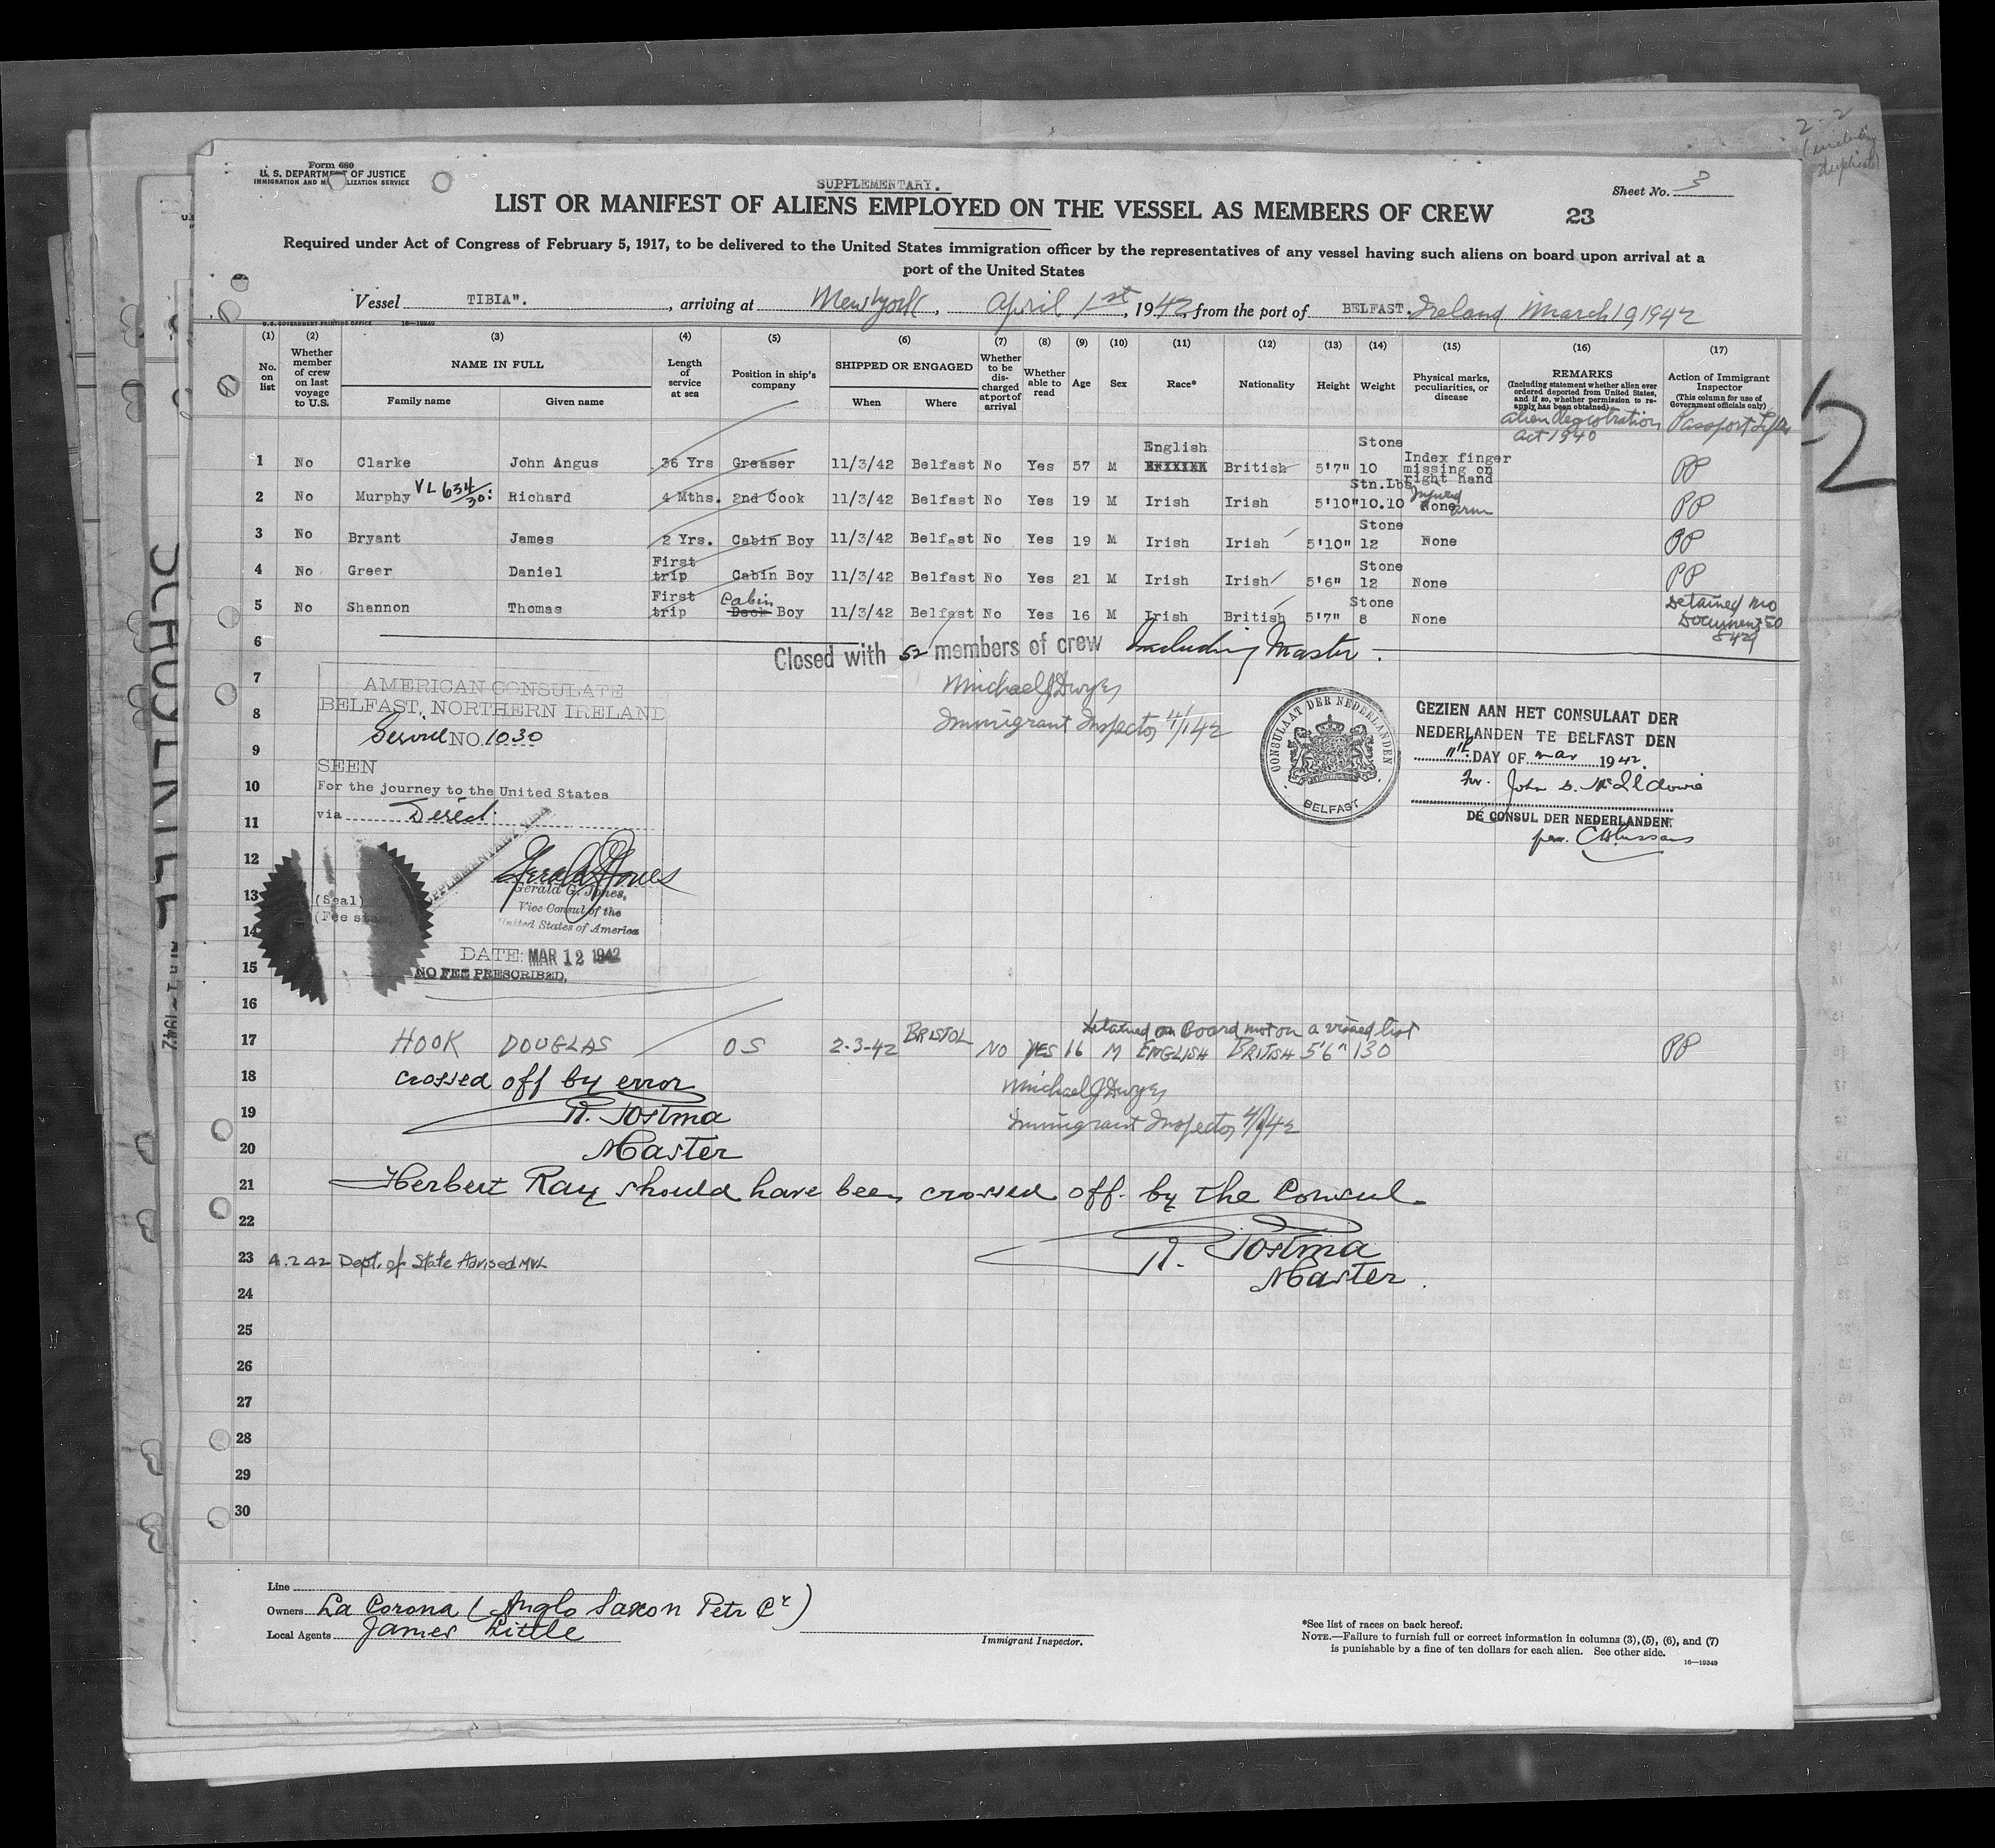 Form 680
U. S. DEPARTMENT OF JUSTICE
IMMIGRATION AND LIZATION SERVICE
SUPPLEMENTARY.
Sheet No. 3
LIST OR MANIFEST OF ALIENS EMPLOYED ON THE VESSEL AS MEMBERS OF CREW 23
Required under Act of Congress of February 5, 1917, to be delivered to the United States immigration officer by the representatives of any vessel having such aliens on board upon arrival at a
port of the United States
Vessel TIBIA". , arriving at New York , April 1st , 1942, from the port of BELFAST. Ireland March 19 1942
U.S. GOVERNMENT PRINTING OFFICE 16—19349
(1) (2) (3) (4) (5) (6) (7) (8) (9) (10) (11) (12) (13) (14) (15) (16) (17)
No. on list
Whether member of crew on last voyage to U.S.
NAME IN FULL
Family name Given name
Length of service at sea
Position in ship's company
SHIPPED OR ENGAGED
When Where
Whether to be discharged at port of arrival
Whether able to read
Age
Sex
Race*
Nationality
Height
Weight
Physical marks, peculiarities, or disease
REMARKS
(Including statement whether alien ever ordered deported from United States, and if so, whether permission to reapply has been obtained)
Action of Immigrant Inspector
(This column for use of Government officials only)
Alien Registration Act 1940
1 No Clarke John Angus 36 Yrs Greaser 11/3/42 Belfast No Yes 57 M English British 5'7" Stone 10 Index finger missing on right hand PP
2 No Murphy VL 634/30: Richard 4 Mths. 2nd Cook 11/3/42 Belfast No Yes 19 M Irish Irish 5'10" Stn.Lbs 10.10 None Injured arm PP
3 No Bryant James 2 Yrs. Cabin Boy 11/3/42 Belfast No Yes 19 M Irish Irish 5'10" Stone 12 None PP
4 No Greer Daniel First trip Cabin Boy 11/3/42 Belfast No Yes 21 M Irish Irish 5'6" Stone 12 None PP
5 No Shannon Thomas First trip Cabin Deck Boy 11/3/42 Belfast No Yes 16 M Irish British 5'7" Stone 8 None Detained no Documents
6 Closed with 52 members of crew Including Master.
7 Michael J Dwyer
8 Immigrant Inspector 4/1/42
AMERICAN CONSULATE
BELFAST, NORTHERN IRELAND
Service NO. 1030
SEEN
For the journey to the United States
via Direct
SUPPLEMENTARY VISA
Gerald G. Jones
Gerald G. Jones,
Vice Consul of the
United States of America
(Seal)
(Fee stamp)
DATE: MAR 12 1942
NO FEE PRESCRIBED.
CONSULAAT DER NEDERLANDEN
BELFAST
GEZIEN AAN HET CONSULAAT DER
NEDERLANDEN TE BELFAST DEN
11th DAY OF Mar 1942.
for. John S. McIldowie
DE CONSUL DER NEDERLANDEN.
9
10
11
12
13
14
15
16
Detained on Board not on a visaed list
17 HOOK DOUGLAS OS 2-3-42 BRISTOL NO YES 16 M ENGLISH BRITISH 5'6" 130 PP
18 crossed off by error Michael J Dwyer
19 R. Postma Immigrant Inspector 4/1/42
20 Master
21 Herbert Ray should have been crossed off by the Consul
22 R. Postma
Master.
23 4.2.42 Dept. of State Advised MVL
24
25
26
27
28
29
30
Line
Owners La Corona (Anglo Saxon Petr Cy)
Local Agents James Little
Immigrant Inspector.
*See list of races on back hereof.
NOTE.—Failure to furnish full or correct information in columns (3), (5), (6), and (7)
is punishable by a fine of ten dollars for each alien. See other side.
16—19349
2-2
(including
duplicate)
12